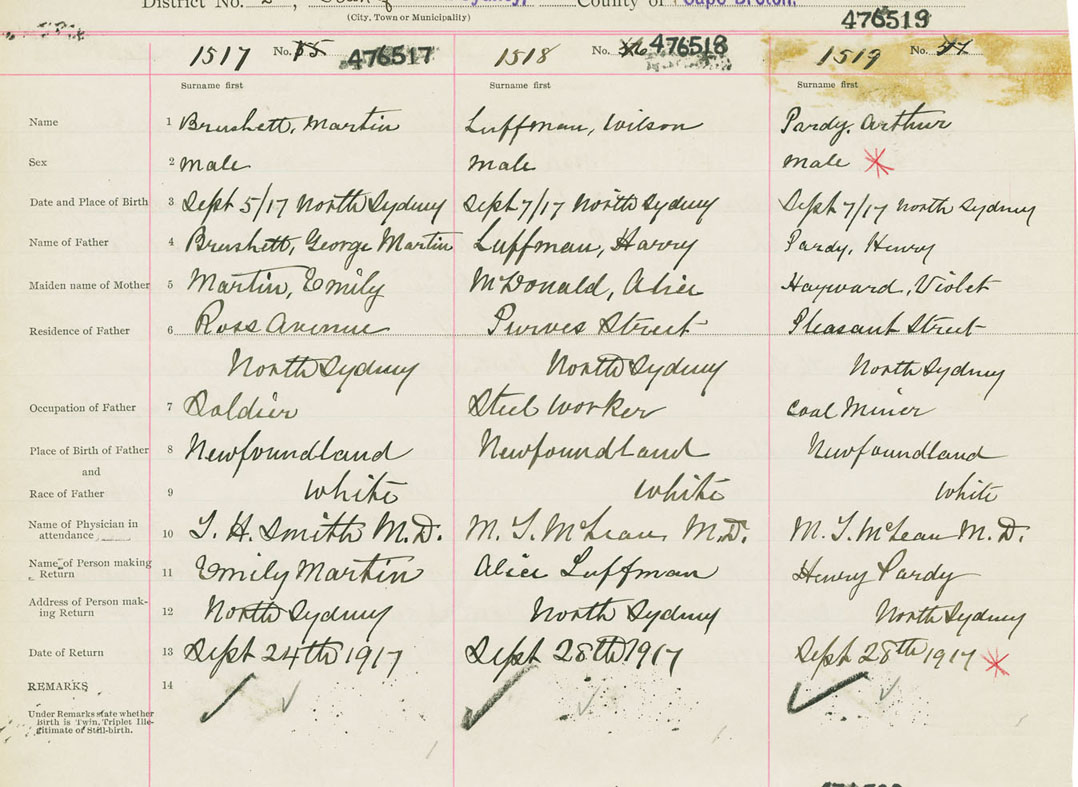 District No. 2, Sydney, County of Cape Breton.
(City, Town or Municipality)
476519
1517 No. 55 476517 1518 No. 56 476518 1519 No. 57
Surname first Surname first Surname first
Name 1 Brushett, Martin Luffman, Wilson Pardy, Arthur
Sex 2 male male male
Date and Place of Birth 3 Sept 5/17 North Sydney Sept 7/17 North Sydney Sept 7/17 North Sydney
Name of Father 4 Brushett, George Martin Luffman, Harry Pardy, Henry
Maiden name of Mother 5 Martin, Emily McDonald, Alice Hayward, Violet
Residence of Father 6 Ross Avenue Purves Street Pleasant Street
North Sydney North Sydney North Sydney
Occupation of Father 7 Soldier Steel Worker Coal Miner
Place of Birth of Father 8 Newfoundland Newfoundland Newfoundland
and
Race of Father 9 White White White
Name of Physician in
attendance 10 T. H. Smith M.D. M. T. McLean M.D. M. T. McLean M.D.
Name of Person making
Return 11 Emily Martin Alice Luffman Henry Pardy
Address of Person mak-
ing Return 12 North Sydney North Sydney North Sydney
Date of Return 13 Sept 24th 1917 Sept 28th 1917 Sept 28th 1917
REMARKS 14
Under Remarks state whether
Birth is Twin, Triplet Ille-
gitimate or Still-birth.